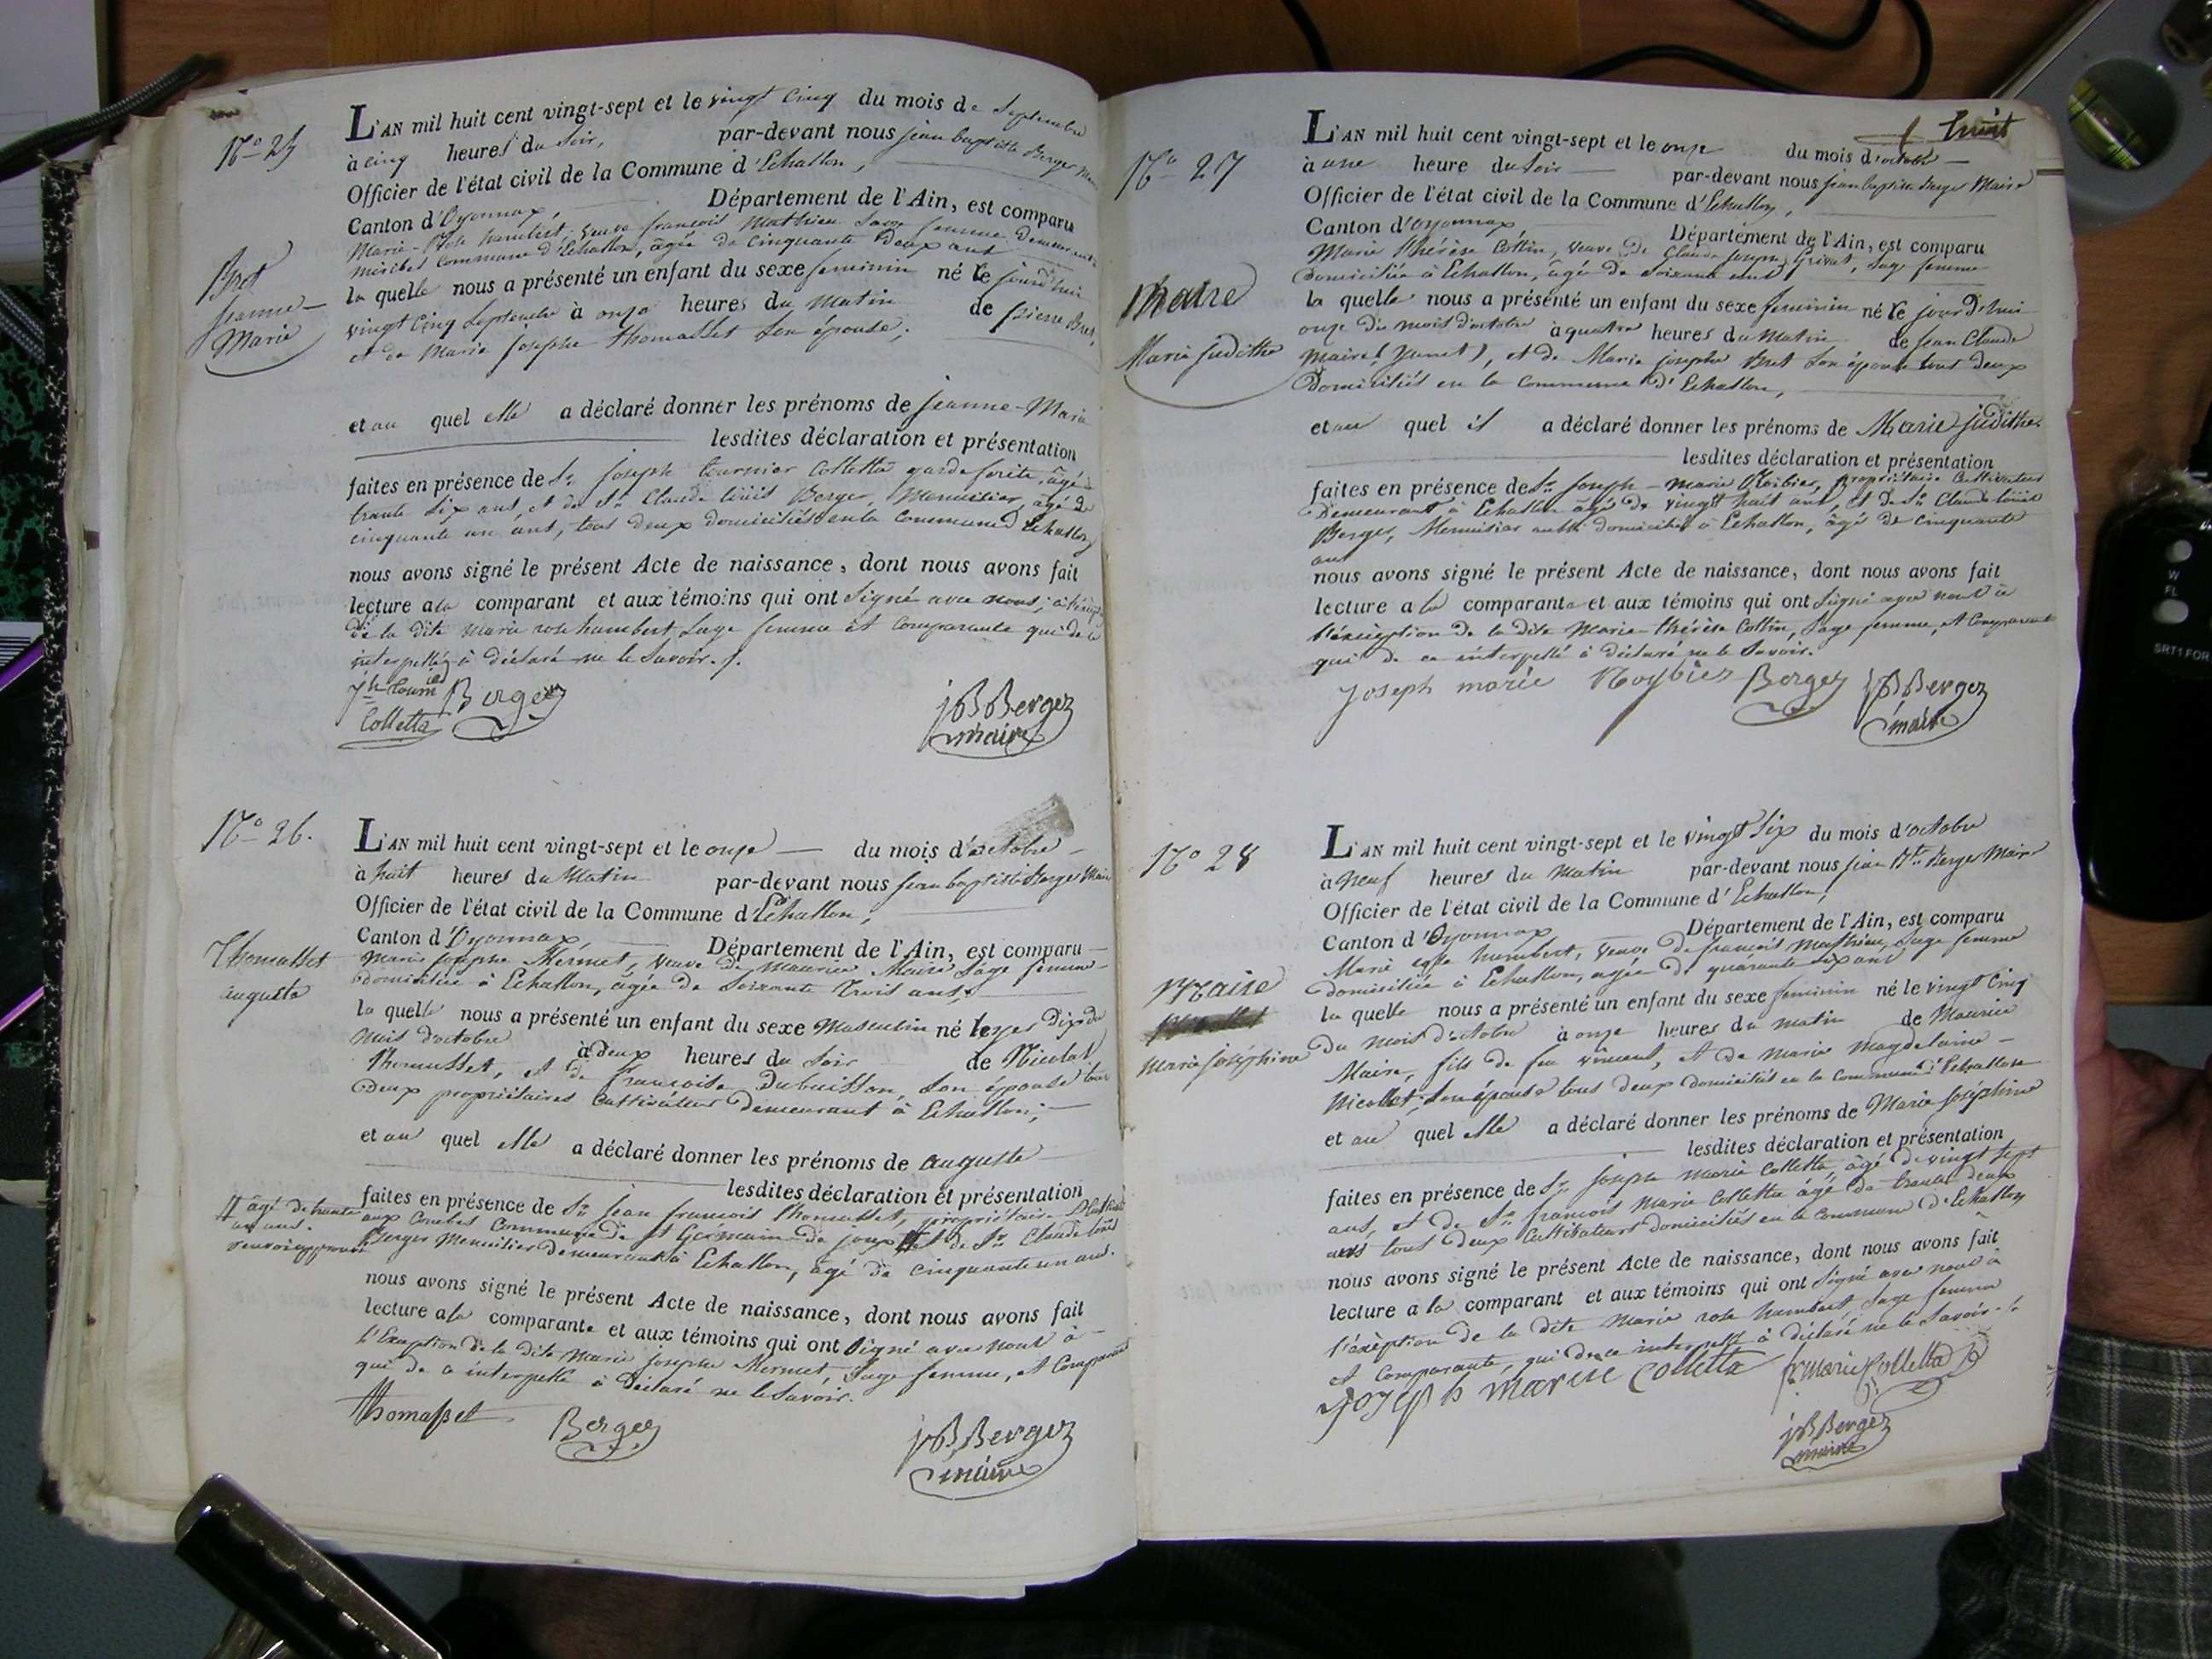 N° 25
Bret
Jeanne-
Marie
L'AN mil huit cent vingt-sept et le vingt cinq du mois de Septembre
à cinq heures du Soir, par-devant nous jean baptiste Berger
Officier de l'état civil de la Commune d'Echallon,
Canton d'Oyonnax, Département de l'Ain, est comparu
Marie-Rose humbert, veuve françois Mathieu Sage femme
miribel commune d'Echallon, âgée de cinquante deux ans
la quelle nous a présenté un enfant du sexe feminin né le jourd'hui
vingt cinq Septembre à onze heures du Matin de pierre Bret,
et de Marie josephe thomasset Son épouse;
et au quel elle a déclaré donner les prénoms de jeanne-Marie
lesdites déclaration et présentation
faites en présence de Sr joseph tournier Colletta garde forête, âgé
trante six ans, et de Sr Claude loüis Berger, Menuisier, agé de
cinquante un ans, tous deux domiciliés en la Commune d'Echallon
nous avons signé le présent Acte de naissance, dont nous avons fait
lecture a la comparant et aux témoins qui ont Signé avec nous;
de la dite marie rose humbert Sage femme et Comparante qui de ce
interpellée à déclaré ne le Savoir.
Jh tourni Berger
Colletta
JB Berger
maire
N° 26.
Thomasset
auguste
L'AN mil huit cent vingt-sept et le onze du mois d'octobre
à huit heures du Matin par-devant nous jean baptiste Berger Maire
Officier de l'état civil de la Commune d'Echallon,
Canton d'Oyonnax, Département de l'Ain, est comparu
Marie josephe Mermet, veuve de maurice Maire Sage femme
domiciliée à Echallon, âgée de Soixante trois ans,
la quelle nous a présenté un enfant du sexe Masculin né le dix du
mois d'octobre à deux heures du Soir de Nicolas
Thomasset, et de françoise Dubuisson, Son épouse tous
deux propriétaires Cultivateurs demeurant à Echallon;
et au quel elle a déclaré donner les prénoms de auguste
lesdites déclaration et présentation
faites en présence de Sr jean françois thomasset, propriétaire
âgé de trante
un ans.
renvoi approuvé
aux Combes Commune de St Germain de joux et de Sr Claude loüis
Berger Menuisier demeurant à Echallon, âgé de cinquante un ans.
nous avons signé le présent Acte de naissance, dont nous avons fait
lecture a la comparante et aux témoins qui ont Signé avec nous à
l'Exception de la dite Marie josephe Mermet, Sage femme, et Comparante
qui de ce interpellé à déclaré ne le Savoir.
Thomasset Berger
JB Berger
maire
huit
N° 27
Maire
Marie Judithe
L'AN mil huit cent vingt-sept et le onze du mois d'octobre
à une heure du Soir par-devant nous jean baptiste Berger Maire
Officier de l'état civil de la Commune d'Echallon,
Canton d'oyonnax Département de l'Ain, est comparu
Marie thérèse Cottin, veuve de Claude joseph Grivat, Sage femme
domiciliée à Echallon, âgé de Soixante ans
la quelle nous a présenté un enfant du sexe feminin né le jour d'hui
onze du mois d'octobre à quatre heures du Matin de jean Claude
maire et de Marie josephe Bret Son épouse tous deux
domiciliés en la Commune d'Echallon,
et au quel il a déclaré donner les prénoms de Marie Judithe
lesdites déclaration et présentation
faites en présence de Sr joseph-marie Roibier, propriétaire Cultivateur
demeurant à Echallon âgé de vingt huit ans, et de Sr Claude loüis
Berger, Menuisier domicilié à Echallon, âgé de cinquante
ans
nous avons signé le présent Acte de naissance, dont nous avons fait
lecture a la comparante et aux témoins qui ont Signé avec nous à
l'exception de la dite Marie thérèse Cottin, Sage femme, et Comparante
qui de ce interpellé à déclaré ne le Savoir.
Joseph marie Roybier Berger JB Berger
maire
N° 28
Maire
Marie joséphine
L'AN mil huit cent vingt-sept et le vingt Six du mois d'octobre
à Neuf heures du Matin par-devant nous jean Bte Berger Maire
Officier de l'état civil de la Commune d'Echallon,
Canton d'Oyonnax Département de l'Ain, est comparu
Marie rose humbert, veuve de françois Mathieu, Sage femme
domiciliée à Echallon, agée de quarante six ans
la quelle nous a présenté un enfant du sexe feminin né le vingt cinq
du mois d'octobre à onze heures du matin de Maurice
Maire, fils de feu vincent, et de marie magdelaine
Nicollet, Son épouse tous deux domiciliés en la commune d'Echallon
et au quel elle a déclaré donner les prénoms de Marie joséphine
lesdites déclaration et présentation
faites en présence de Sr joseph marie Colletta, âgé de vingt sept
ans, et de Sr françois Marie Colletta âgé de trante deux
ans tous deux Cultivateurs domiciliés en la commune d'Echallon
nous avons signé le présent Acte de naissance, dont nous avons fait
lecture a la comparant et aux témoins qui ont Signé avec nous à
l'exèption de la dite Marie rose humbert, Sage femme
et Comparante, qui de ce interpellé à déclaré ne le Savoir.
Joseph marie Colletta fs marie Colletta
JB Berger
maire
W
FL
SRT1 FOR